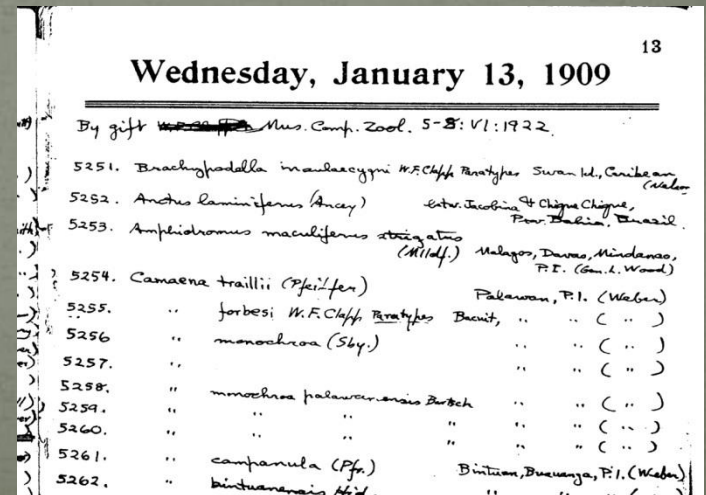 13
Wednesday, January 13, 1909
By gift Mus. Comp. Zool. 5-8: VI: 1922
5251. Brachypodella W.F. Clapp Paratypes Swan Id., Caribean
(Nelson
5252. laminiferus (Ancey) betw. Jacobina & Chique Chique,
Prov. Bahia, Brazil.
5253. Amphidromus maculiferus strigatus
(Mlldf.) Malagos, Davao, Mindanao,
P.I. (Gen. L. Wood)
5254. Camaena traillii (Pfeiffer) Palawan, P.I. (Weber)
5255. " forbesi W.F. Clapp Paratypes Bacuit, " " ( " )
5256 " monochroa (Sby.) " " ( " )
5257. " " " ( " )
5258. " monochroa palawanensis Bartsch " " ( " )
5259. " " " " " " ( " )
5260. " " " " " " ( " )
5261. " campanula (Pfr.) Bintuan, Busuanga, P.I. (Weber)
5262. " bintuanensis Hid. " "